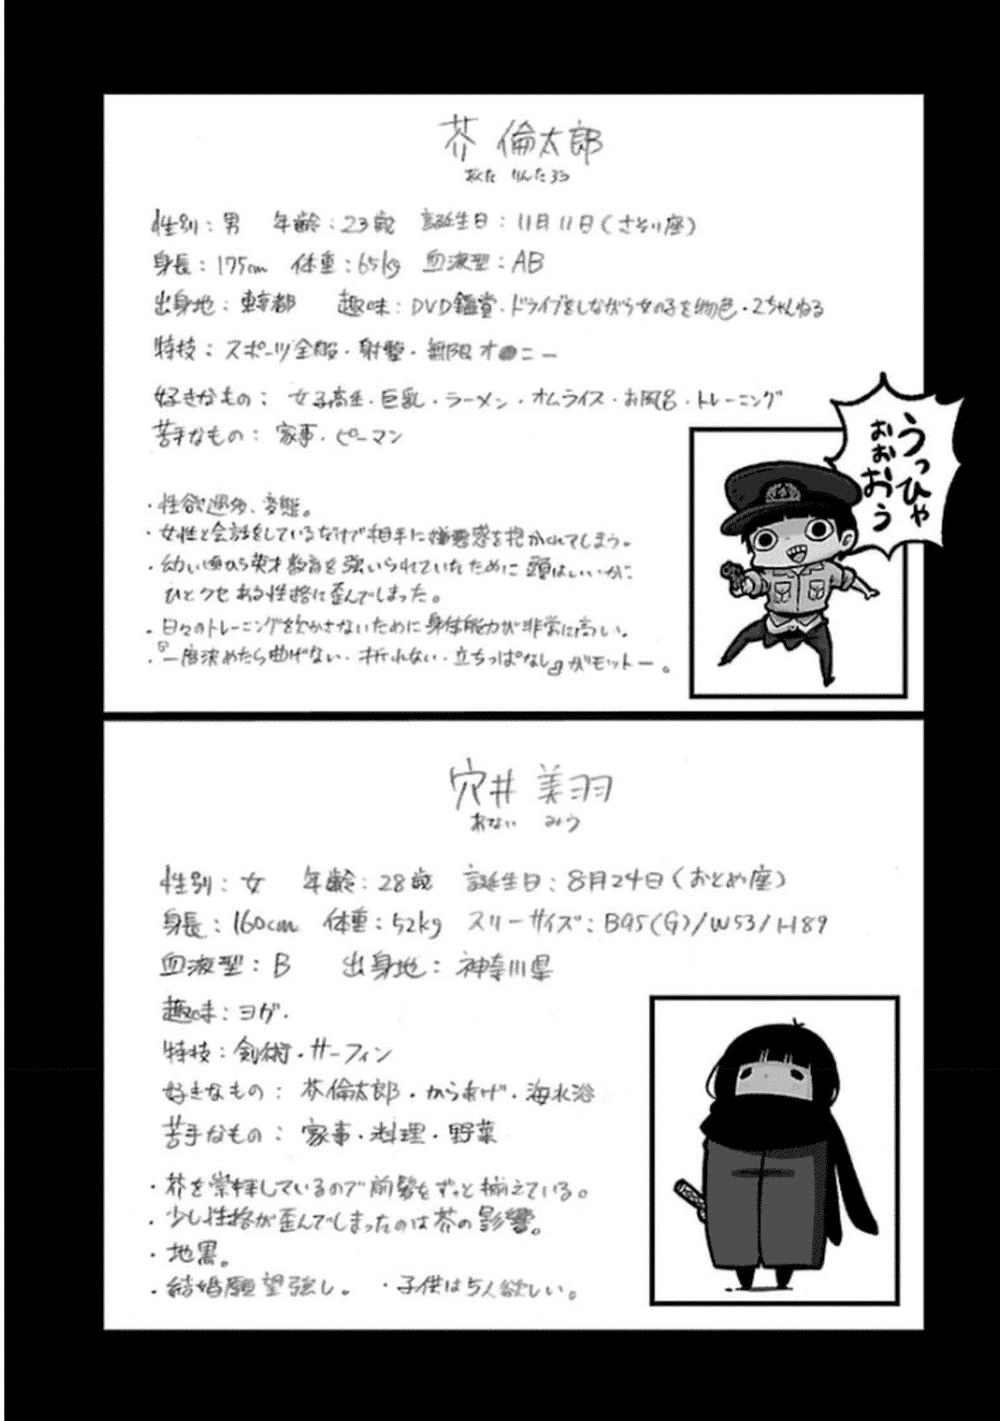 芥 倫太郎
あくた りんたろう
性別：男　年齢：23歳　誕生日：11月11日(さそり座)
身長：175cm　体重：65kg　血液型：AB
出身地：東京都　趣味：DVD鑑賞・ドライブをしながら女の子を物色・2ちゃんねる
特技：スポーツ全般・射撃・無限オ●ニー
好きなもの：女子高生・巨乳・ラーメン・オムライス・お風呂・トレーニング
苦手なもの：家事・ピーマン
うっひゃ
おおおう
・性欲過多、変態。
・女性と会話をしているだけで相手に嫌悪感を抱かれてしまう。
・幼い頃から英才教育を強いられていたために頭はいいが
ひとクセある性格に歪んでしまった。
・日々のトレーニングを欠かさないために身体能力が非常に高い。
・『一度決めたら曲げない・折れない・立ちっぱなし』がモットー。
穴井 美羽
あない みう
性別：女　年齢：28歳　誕生日：8月24日(おとめ座)
身長：160cm　体重：52kg　スリーサイズ：B95(G)/W53/H89
血液型：B　出身地：神奈川県
趣味：ヨガ・
特技：剣術・サーフィン
好きなもの：芥倫太郎・からあげ・海水浴
苦手なもの：家事・料理・野菜
・芥を崇拝しているので前髪をずっと揃えている。
・少し性格が歪んでしまったのは芥の影響。
・地黒。
・結婚願望強し。　・子供は5人欲しい。